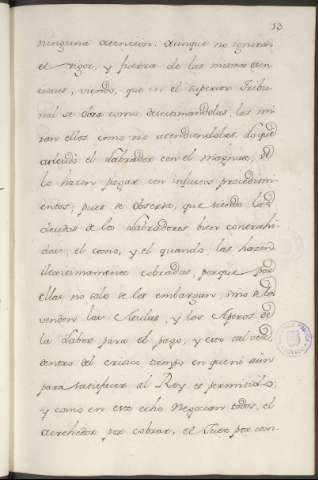 13
ninguna atencion: aunque no ignoran
el rigor, y fuerza de las mismas
viendo, que en el superior Tribu-
nal se obra como desestimandolas, las mi-
ran ellos como no atendiendolas,
el Labrador con el
lo hacen pagar con injustos procedim-
ientos, pues se observa, que siendo las
deudas de los Labradores bien contrahi-
das, el como, y el quando, las hazen
cobradas, porque por
ellas no solo se les embargan, sino se les
venden las Mulas, y los Aperos de
la Labor para el pago, y esto tal vez,
dentro del critico tiempo en que ni aun
para satisfacer al Rey es permitido,
y como en este echo Negocian todos, el
acrehedor por cobrar, el Juez por con-